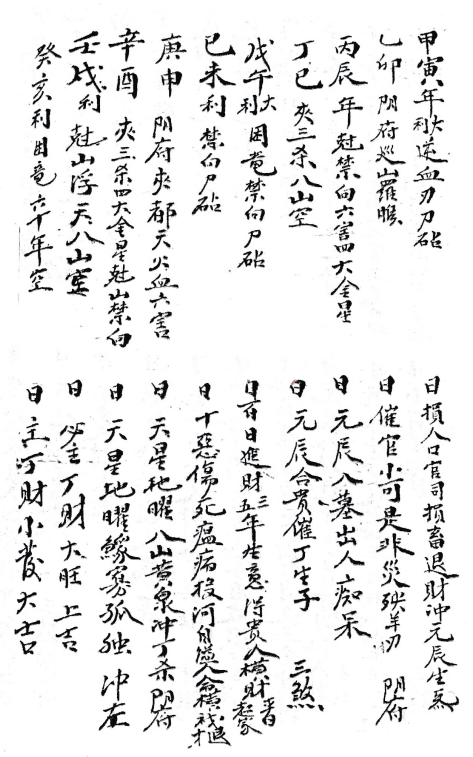 甲寅年大利逆血刃刀砧
乙卯 陰府巡山羅睺
丙辰 年尅禁向六害四大金星
丁巳 夾三杀八山空
戊午大利困竜禁向刀砧
己未利 禁向刀砧
庚申 陰府夾都天火血六害
辛酉 夾三杀四大金星尅山禁向
壬戌利 尅山浮天八山空
癸亥利困竜六十年空
日損人口官司損畜退財冲元辰生炁
日催官小可是非災殃羊刃 陰府
日元辰入墓出人痴呆
日元辰合貴催丁生子 三煞
日百日進財三五年生意得貴人横財
日十惡傷死瘟病投河自縊人命横
日天星地曜八山黄泉冲丁杀陰府
日天星地曜鰥寡孤独 冲
日必主丁財大旺上吉
日主丁財小發大吉